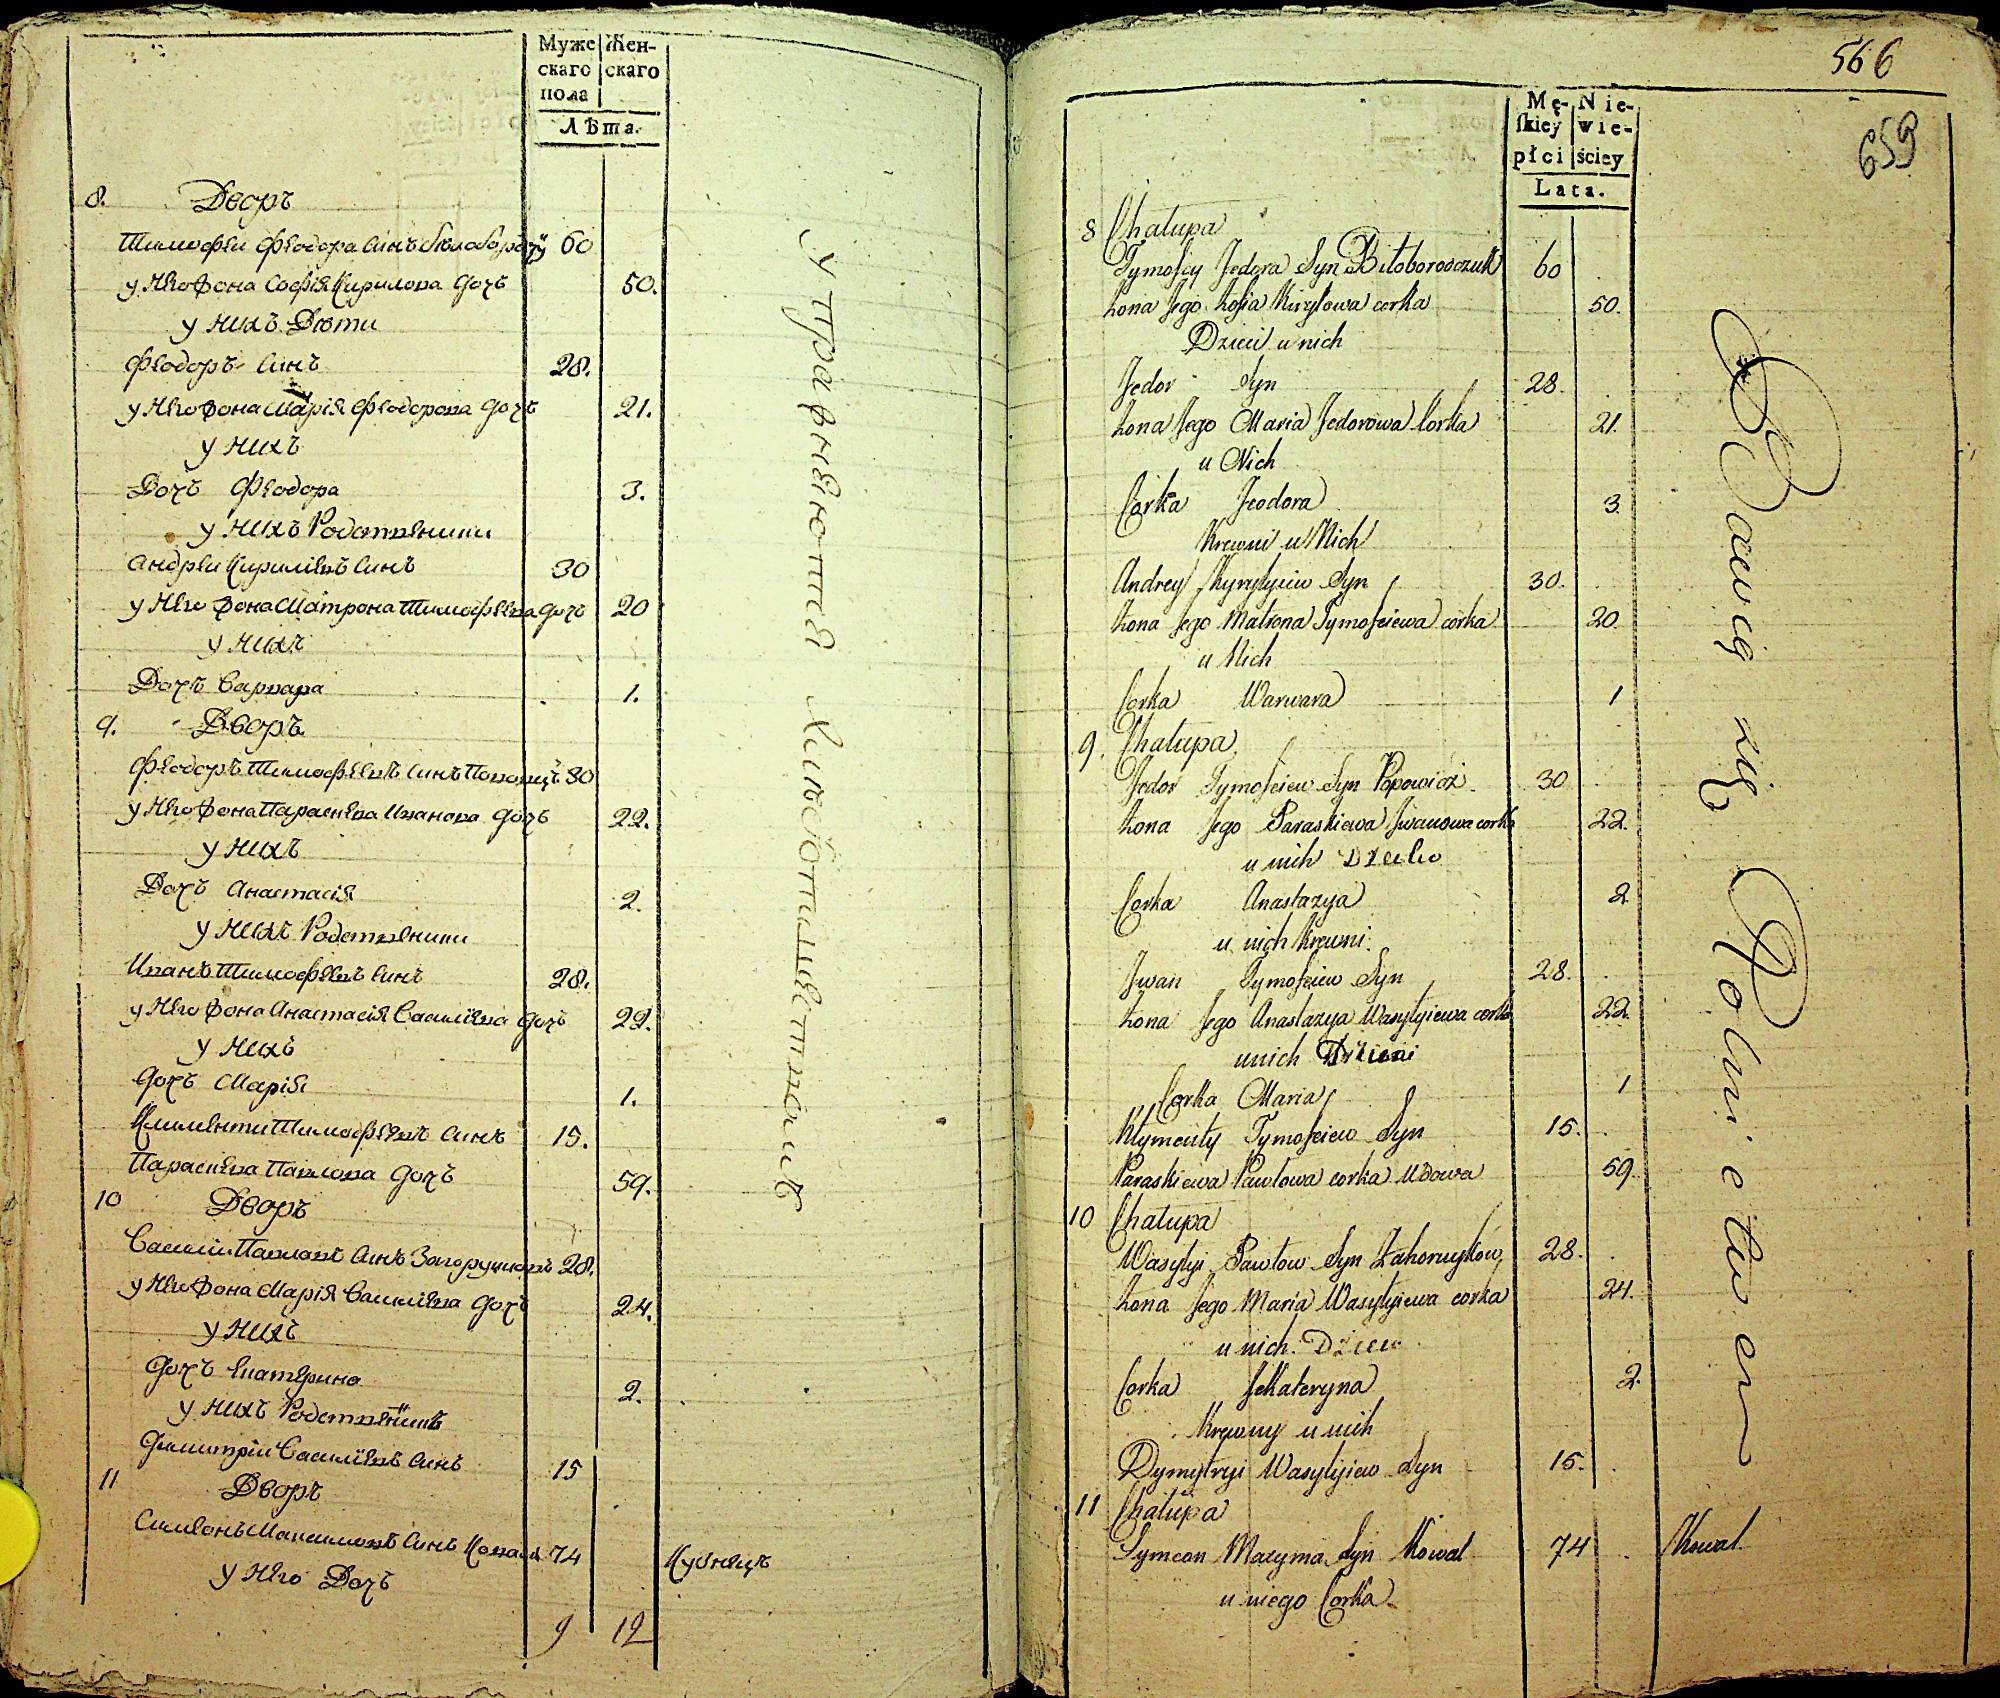 Муже Жен-
скаго скаго
пола
Лѣта.
8. Дворъ
Тимофеи Феодора Синъ Билобор 60
у Него Жона Софія Кирилова дочъ 50.
у нихъ Дѣти
Феодоръ Синъ 28.
у Него Жона Марія Феодорова дочъ 21.
у нихъ
Дочъ Феодора 3.
у нихъ Родственики
Андреи Кириліевъ Синъ 30
у Него Жона Матрона Тимофѣева дочъ 20
у нихъ
Дочъ Варвара 1.
9. Дворъ
Феодоръ Тимофѣевъ Синъ Поповичъ 30
у Него Жона Параскева Иванова дочъ 22.
у нихъ
Дочъ Анастасія 2.
у нихъ Родственики
Иванъ Тимофѣевъ Синъ 28.
у Него Жона Анастасія Василіева дочъ 22.
у нихъ
дочъ Марія 1.
Климентіи Тимофѣевъ Синъ 15.
Параскева Павлова дочъ 59.
10 Дворъ
Василіи Павловъ Синъ Загоруиковъ 28.
у Него Жона Марія Василіева дочъ 24.
у нихъ
дочъ Екатерина 2.
у нихъ Родственикъ
Димитріи Василіевъ Синъ 15
11 Дворъ
Симеонъ Максимовъ Синъ Коваль 74 Кузнецъ
у Него Дочъ
9 12
упражняются хлебопашествомъ
566
659
Mę- Nie-
skiey wie-
płci ściey
Lata.
8 Chałupa
Tymofiey Fedora Syn Biłoborodczuk 60
Żona Jego Zofia Kiryłowa corka 50.
Dzieci u nich
Fedor Syn 28
Żona Jego Maria Fedorowa Corka 21.
u Nich
Corka Feodora 3
Krewni u Nich
Andrey Kyryłyiew Syn 30.
Żona Jego Matrona Tymofeiewa corka 20.
u Nich
Corka Warwara 1
9. Chałupa
Fedor Tymofeiew Syn Popowicz 30
Żona Jego Paraskiewa Iwanowa corka 22.
u nich Dziecko
Corka Anastazya 2
u nich Krewni.
Iwan Tymofeiew Syn 28.
Żona Jego Anastazya Wasyłyiewa corka 22.
u nich
Corka Maria 1
Kłymenty Tymofeiew Syn 15.
Paraskiewa Pawłowa corka Wdowa 59.
10 Chałupa
Wasyłyi Pawłow Syn Zahoruykow 28.
Żona Jego Maria Wasyłyiewa corka 24.
u nich. Dzieci
Corka Jekateryna 2.
Krewny u nich
Dymytryi Wasyłyiew Syn 15.
11 Chałupa
Symeon Maxyma Syn Kowal 74 Kowal
u niego Corka
Bawią się Rolnictwem